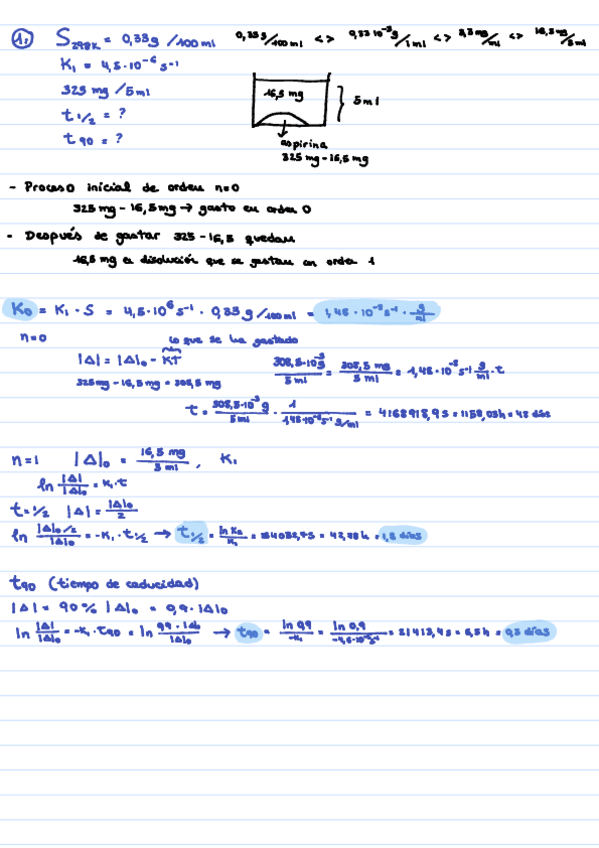 1. S298K = 0,33g /100ml 0,33g/100ml <> 0,33·10⁻²g/1ml <> 3,3mg/ml <> 16,5mg/5ml
K₁ = 4,5·10⁻⁶ s⁻¹
325 mg /5ml
t 1/2 = ?
t 90 = ?
16,5 mg
5ml
aspirina
325 mg - 16,5 mg
- Proceso inicial de orden n=0
325 mg - 16,5 mg → gasto en orden 0
- Después de gastar 325 - 16,5 quedan
16,5 mg en disolución que se gastan en orden 1
K₀ = K₁ · S = 4,5·10⁶ s⁻¹ · 0,33 g /100ml = 1,48·10⁻⁸ s⁻¹ · g/ml
n=0 lo que se ha gastado
|A| = |A|₀ - KT 308,5·10⁻³g/5ml = 308,5 mg/5ml = 1,48·10⁻⁸ s⁻¹ g/ml · t
325mg - 16,5 mg = 308,5 mg
t = 308,5·10⁻³ g/5ml · 1/1,48·10⁻⁸ s⁻¹ g/ml = 4168918,9 s = 1158,03h = 48 días
n=1 |A|₀ = 16,5 mg/5ml , K₁
ln |A|/|A|₀ = K₁·t
t = 1/2 |A| = |A|₀/2
ln |A|₀/2/|A|₀ = -K₁ · t 1/2 → t 1/2 = = 42,78h = 1,8 días
t90 (tiempo de caducidad)
|A| = 90% |A|₀ = 0,9 · |A|₀
ln |A|/|A|₀ = -K₁ · t90 = ln 0,9 · |A|₀/|A|₀ → t90 = ln 0,9/-K₁ = ln 0,9/-4,5·10⁻⁶s⁻¹ = 21413,4s = 6,5h = 0,3 días